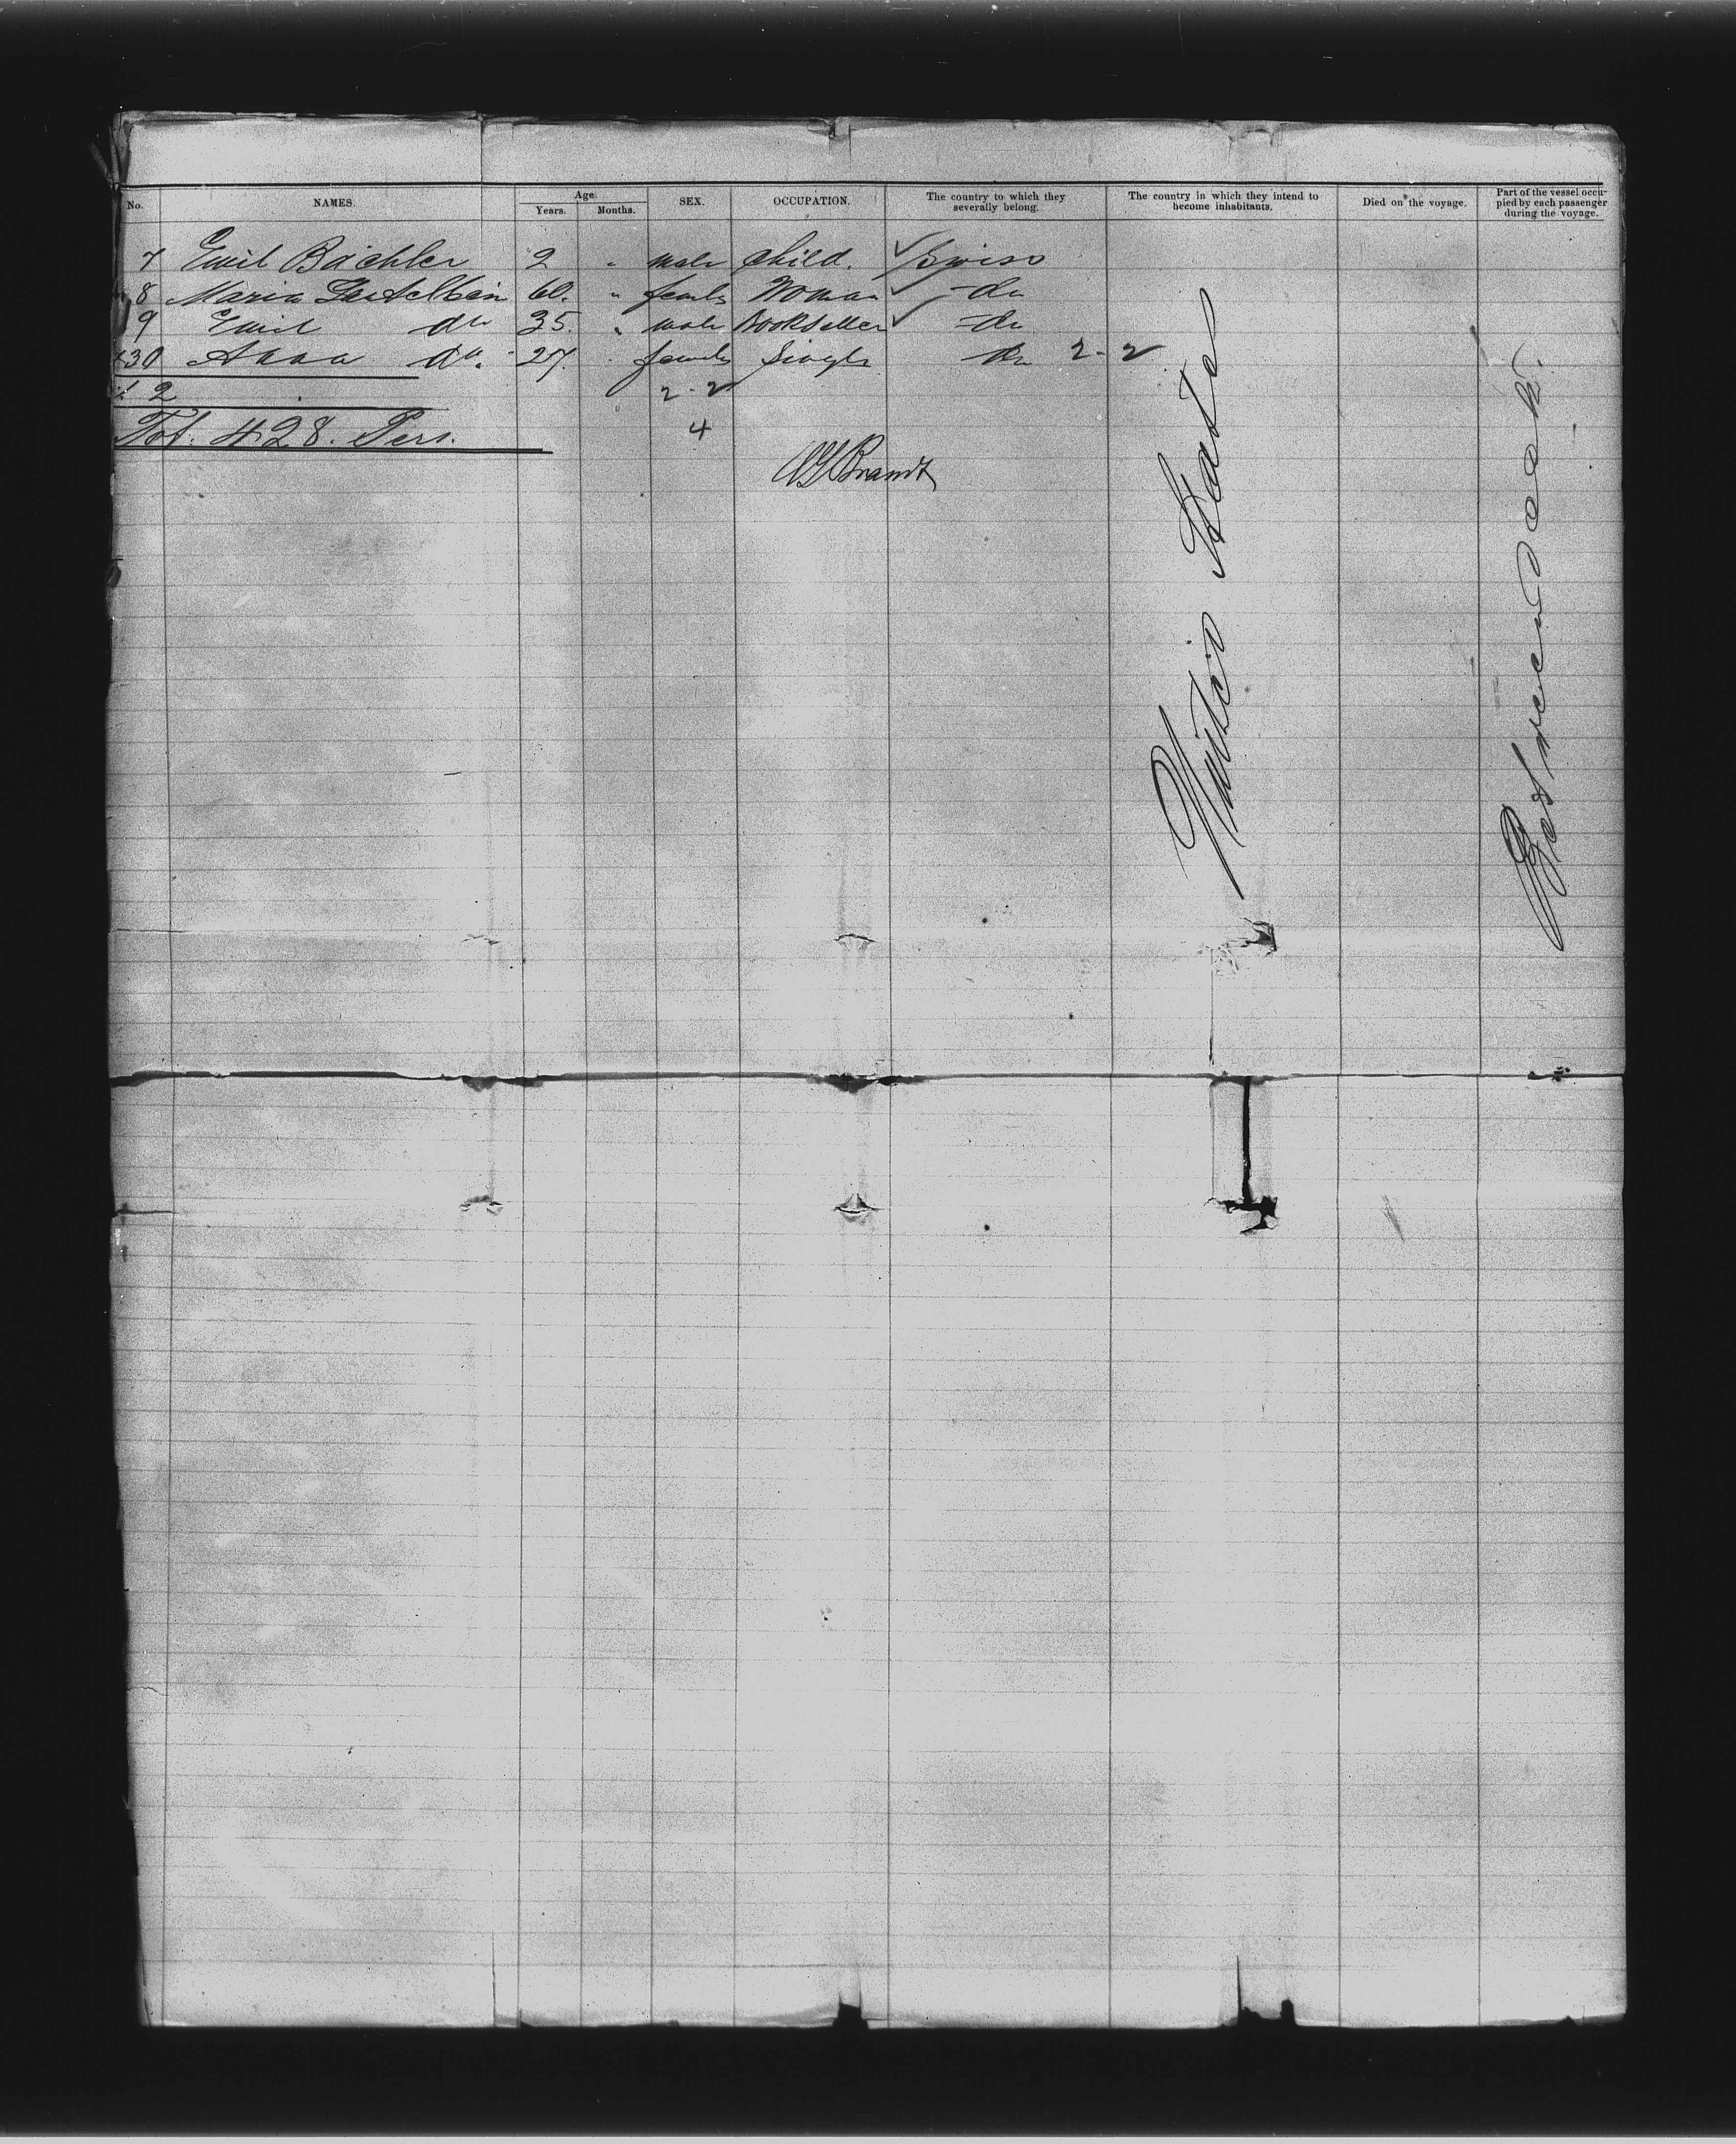 No. NAMES. Age. Years. Months. SEX. OCCUPATION. The country to which they severally belong. The country in which they intend to become inhabitants. Died on the voyage. Part of the vessel occupied by each passenger during the voyage.
7 Emil Bächler 2 " male Child. Swiss
8 Maria 60. " female Woman do
9 Emil do 35. " male Bookseller do
430 Anna do. 27. " female Single do 2-2
% 2 2-2
Tot. 428. Pers. 4
Brandt
United States
Between deck.